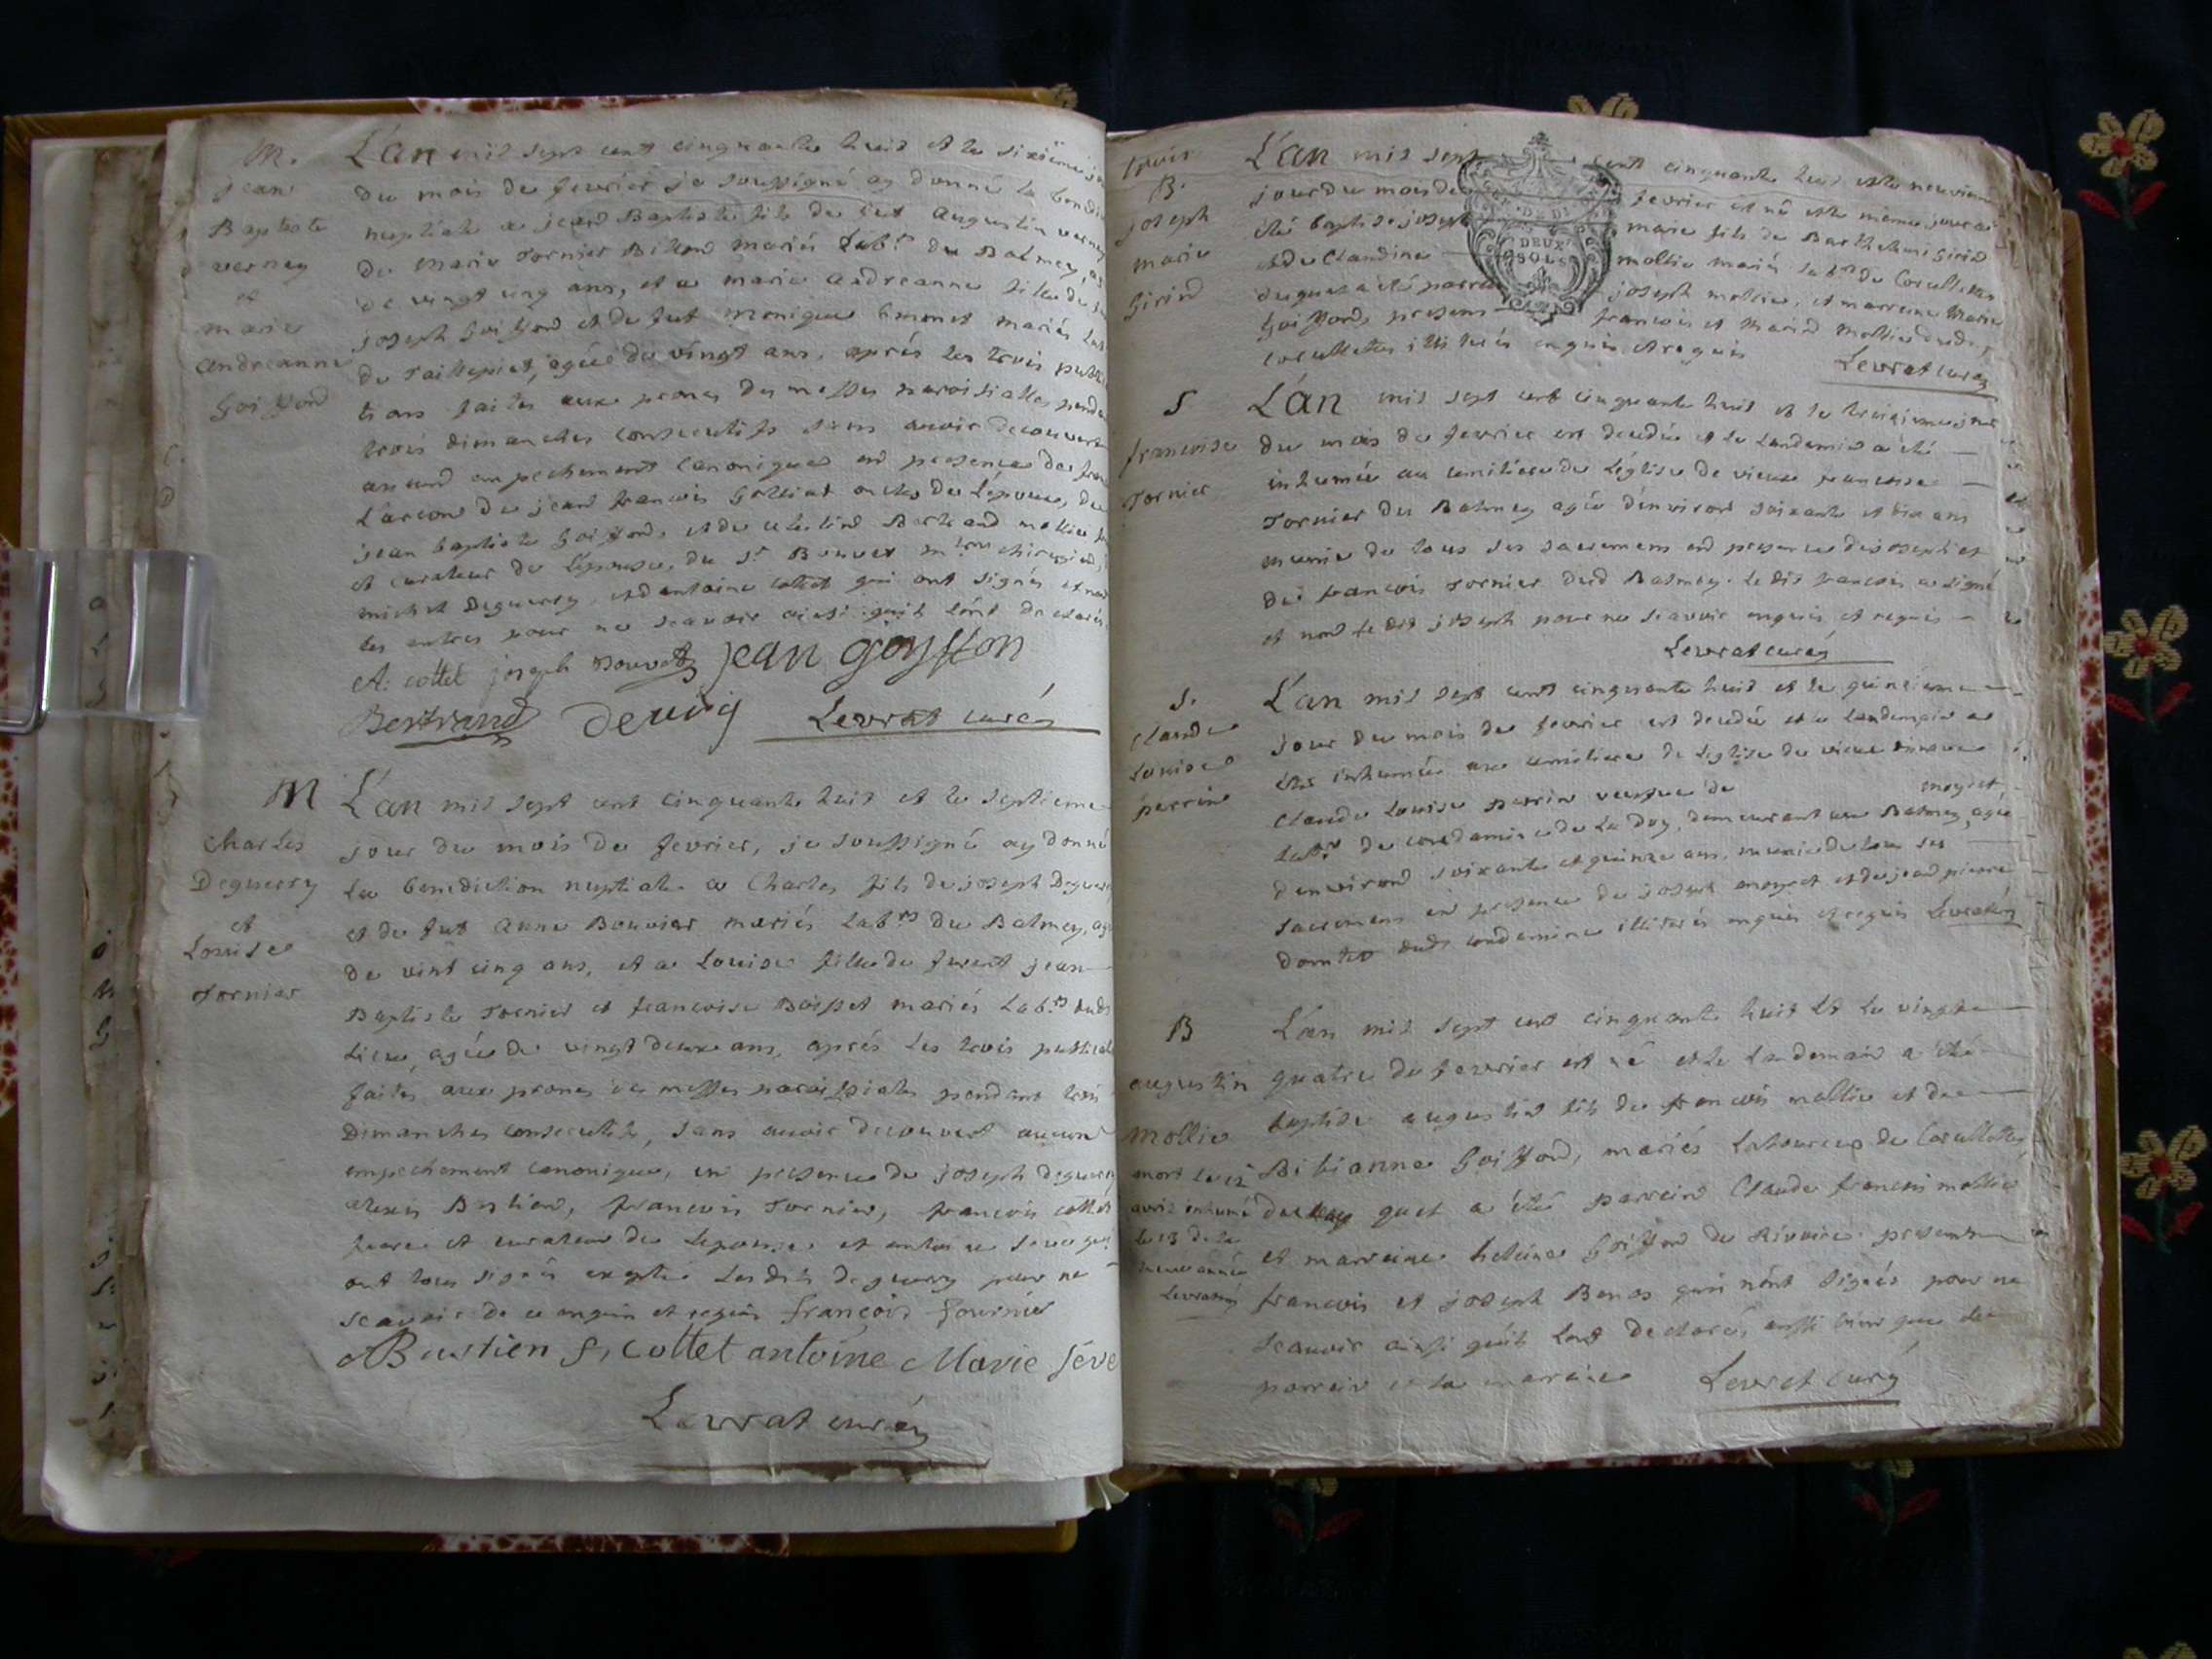 M.
Jean
Baptiste
verney
et
marie
andreanne
Goiffond
L'an mil sept cent cinquante huit et le sixième
du mois de fevrier je soussigné ay donné la
nuptiale a jean Baptiste fils de fut augustin verney
de Marie Tornier Billiond mariés lab.rs du Balmey
de vingt cinq ans, et a marie andreanne fille de
joseph Goiffond et de fut monique Emonet mariés
de agée de vingt ans, après les trois publica
tions faites aux prones des messes paroissialles
trois dimanches consecutifs sans avoir decouvert
aucund empechement canonique en presence de
de jean francois oncle de L'epouse, de
jean baptiste Goiffond, et de Bertrand mollie
et curateur de L'epouse, du S.r Bouvet chirurgien
michel Deguerry, et d'antoine cottet qui ont signés et non
les autres pour ne scavoir ainsi qu'ils l'ont declarés
A: cottet joseph Bouvet jean goyffon
Bertrand devig Levrat curé
M
Charles
Deguerry
et
Louise
Tornier
L'an mil sept cent cinquante huit et le septieme
jour du mois de fevrier, je soussigné ay donné
la benediction nuptiale a Charles fils de joseph Deguer
et de fut anne Bouvier mariés lab.rs du Balmey, ag
de vint cinq ans, et a Louise fille de jean
Baptiste Tornier et francoise Boisset mariés Lab.rs dud
Lieu, agée de vingt deux ans, après les trois publicat
faites aux prones des messes paroissiales pendant trois
Dimanches consecutifs, sans avoir decouvert aucund
empechement canonique, en presence de joseph deguerry
alexis Bustiend, francois Tornier, francois cottet
et curateur de Lepouse et antoine seve qui
ont tous signés excepté Lesdits deguerry pour ne
scavoir de ce enquis et requis françois fournié
A Bustien f, cottet antoine Marie seve
Levrat curé
B.
joseph
marie
Girind
L'an mil sept cent cinquante huit et le neuvieme
jour du mois de fevrier est né et le meme jour a
été baptisé joseph marie fils de Barthelemi Girind
et de Claudine mollie mariés lab.rs de Corcellettes
duquel a été parrain joseph mollie, et marreine Marie
Goiffond, presens francois et Marind mollie dud
corcellettes illiterés enquis et requis Levrat curé
DEUX
SOLS
S
francoise
Tornier
L'an mil sept cent cinquante huit et le treizieme jour
du mois de fevrier est decedée et le Landemind a été
inhumée au cemitiere de L'église de vieux francoise
Tornier du Balmey agée d'environd soixante et dix ans
munie de tous ses sacremens end presence de joseph et
de francois Tornier dud Balmey. Le dit francois a signé
et nond le dit joseph pour ne scavoir enquis et requis
Levrat curé
S.
Claude
Louise
perrin
L'an mil sept cent cinquante huit et le quinzieme
jour du mois de fevrier est decedée et le landemain a
été inhumée au cemitiere de L'église de vieux
Claude Louise perrin veufve de moyret,
lab.r de condamine de La Doy, demeurant au Balmey, agée
d'environd soixante et quinze ans, munie de tous ses
sacremens en presence de joseph moyret et de jean pierre
dud condamine illiterés enquis et requis Levrat curé
B
augustin
mollie
mort le 12
avril inhumé
le 13 de la
meme année
Levrat curé
L'an mil sept cent cinquante huit et le vingt
quatre de fevrier est né et le Landemain a été
baptisé augustind fils de francois mollie et de
Bibianne Goiffond, mariés Laboureurs de Corcellettes
duquel a été parreind Claude francois mollie
et marreine heleine Goiffond de Rivoire presents
francois et joseph Benos qui n'ont signés pour ne
scavoir ainsi qu'ils l'ont declaré, aussi bien que le
parrein et la marreine Levrat curé